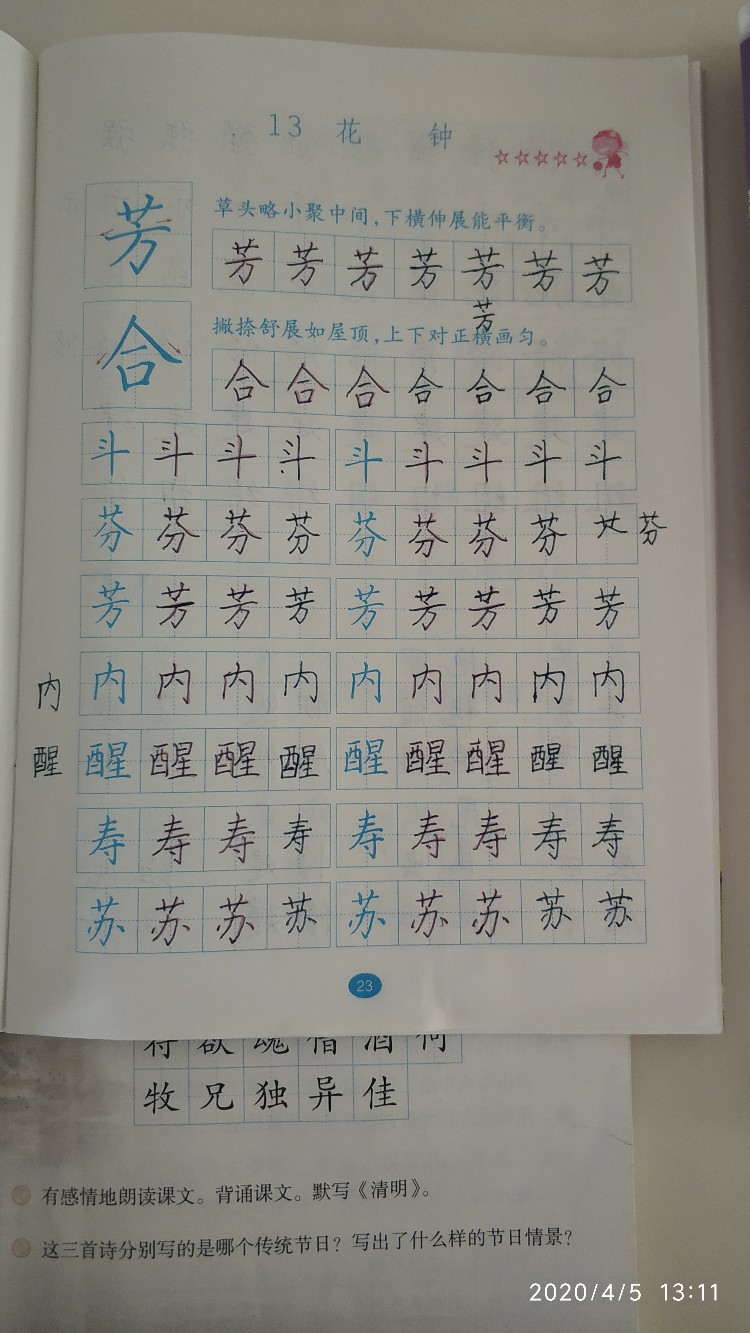 13 花 钟
芳 草头略小聚中间，下横伸展能平衡。
芳 芳 芳 芳 芳 芳 芳
芳
合 撇捺舒展如屋顶，上下对正横画匀。
合 合 合 合 合 合 合
斗 斗 斗 斗 斗 斗 斗 斗 斗
芬 芬 芬 芬 芬 芬 芬 芬 芬
芳 芳 芳 芳 芳 芳 芳 芳 芳
内 内 内 内 内 内 内 内 内 内
醒 醒 醒 醒 醒 醒 醒 醒 醒 醒
寿 寿 寿 寿 寿 寿 寿 寿 寿
苏 苏 苏 苏 苏 苏 苏 苏 苏
23
欲 魂 借 酒 何
牧 兄 独 异 佳
有感情地朗读课文。背诵课文。默写《清明》。
这三首诗分别写的是哪个传统节日？写出了什么样的节日情景？
2020/4/5 13:11